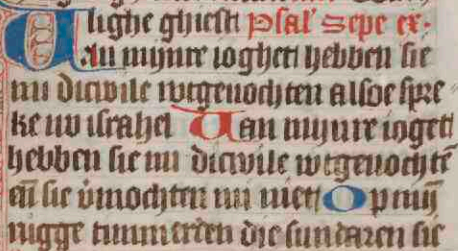 lighe ghiest Psal Sepe ex
Uan mijnre ioghet hebben sie
mi dicwile wtgeuochten alsoe spre
ke nv israhel Uan mijnre ioget
hebben sie mi dicwile wtgeuochtē
eñ sie v̄mochten mi niet Op mijn
rugge timmerden die sundaren sie